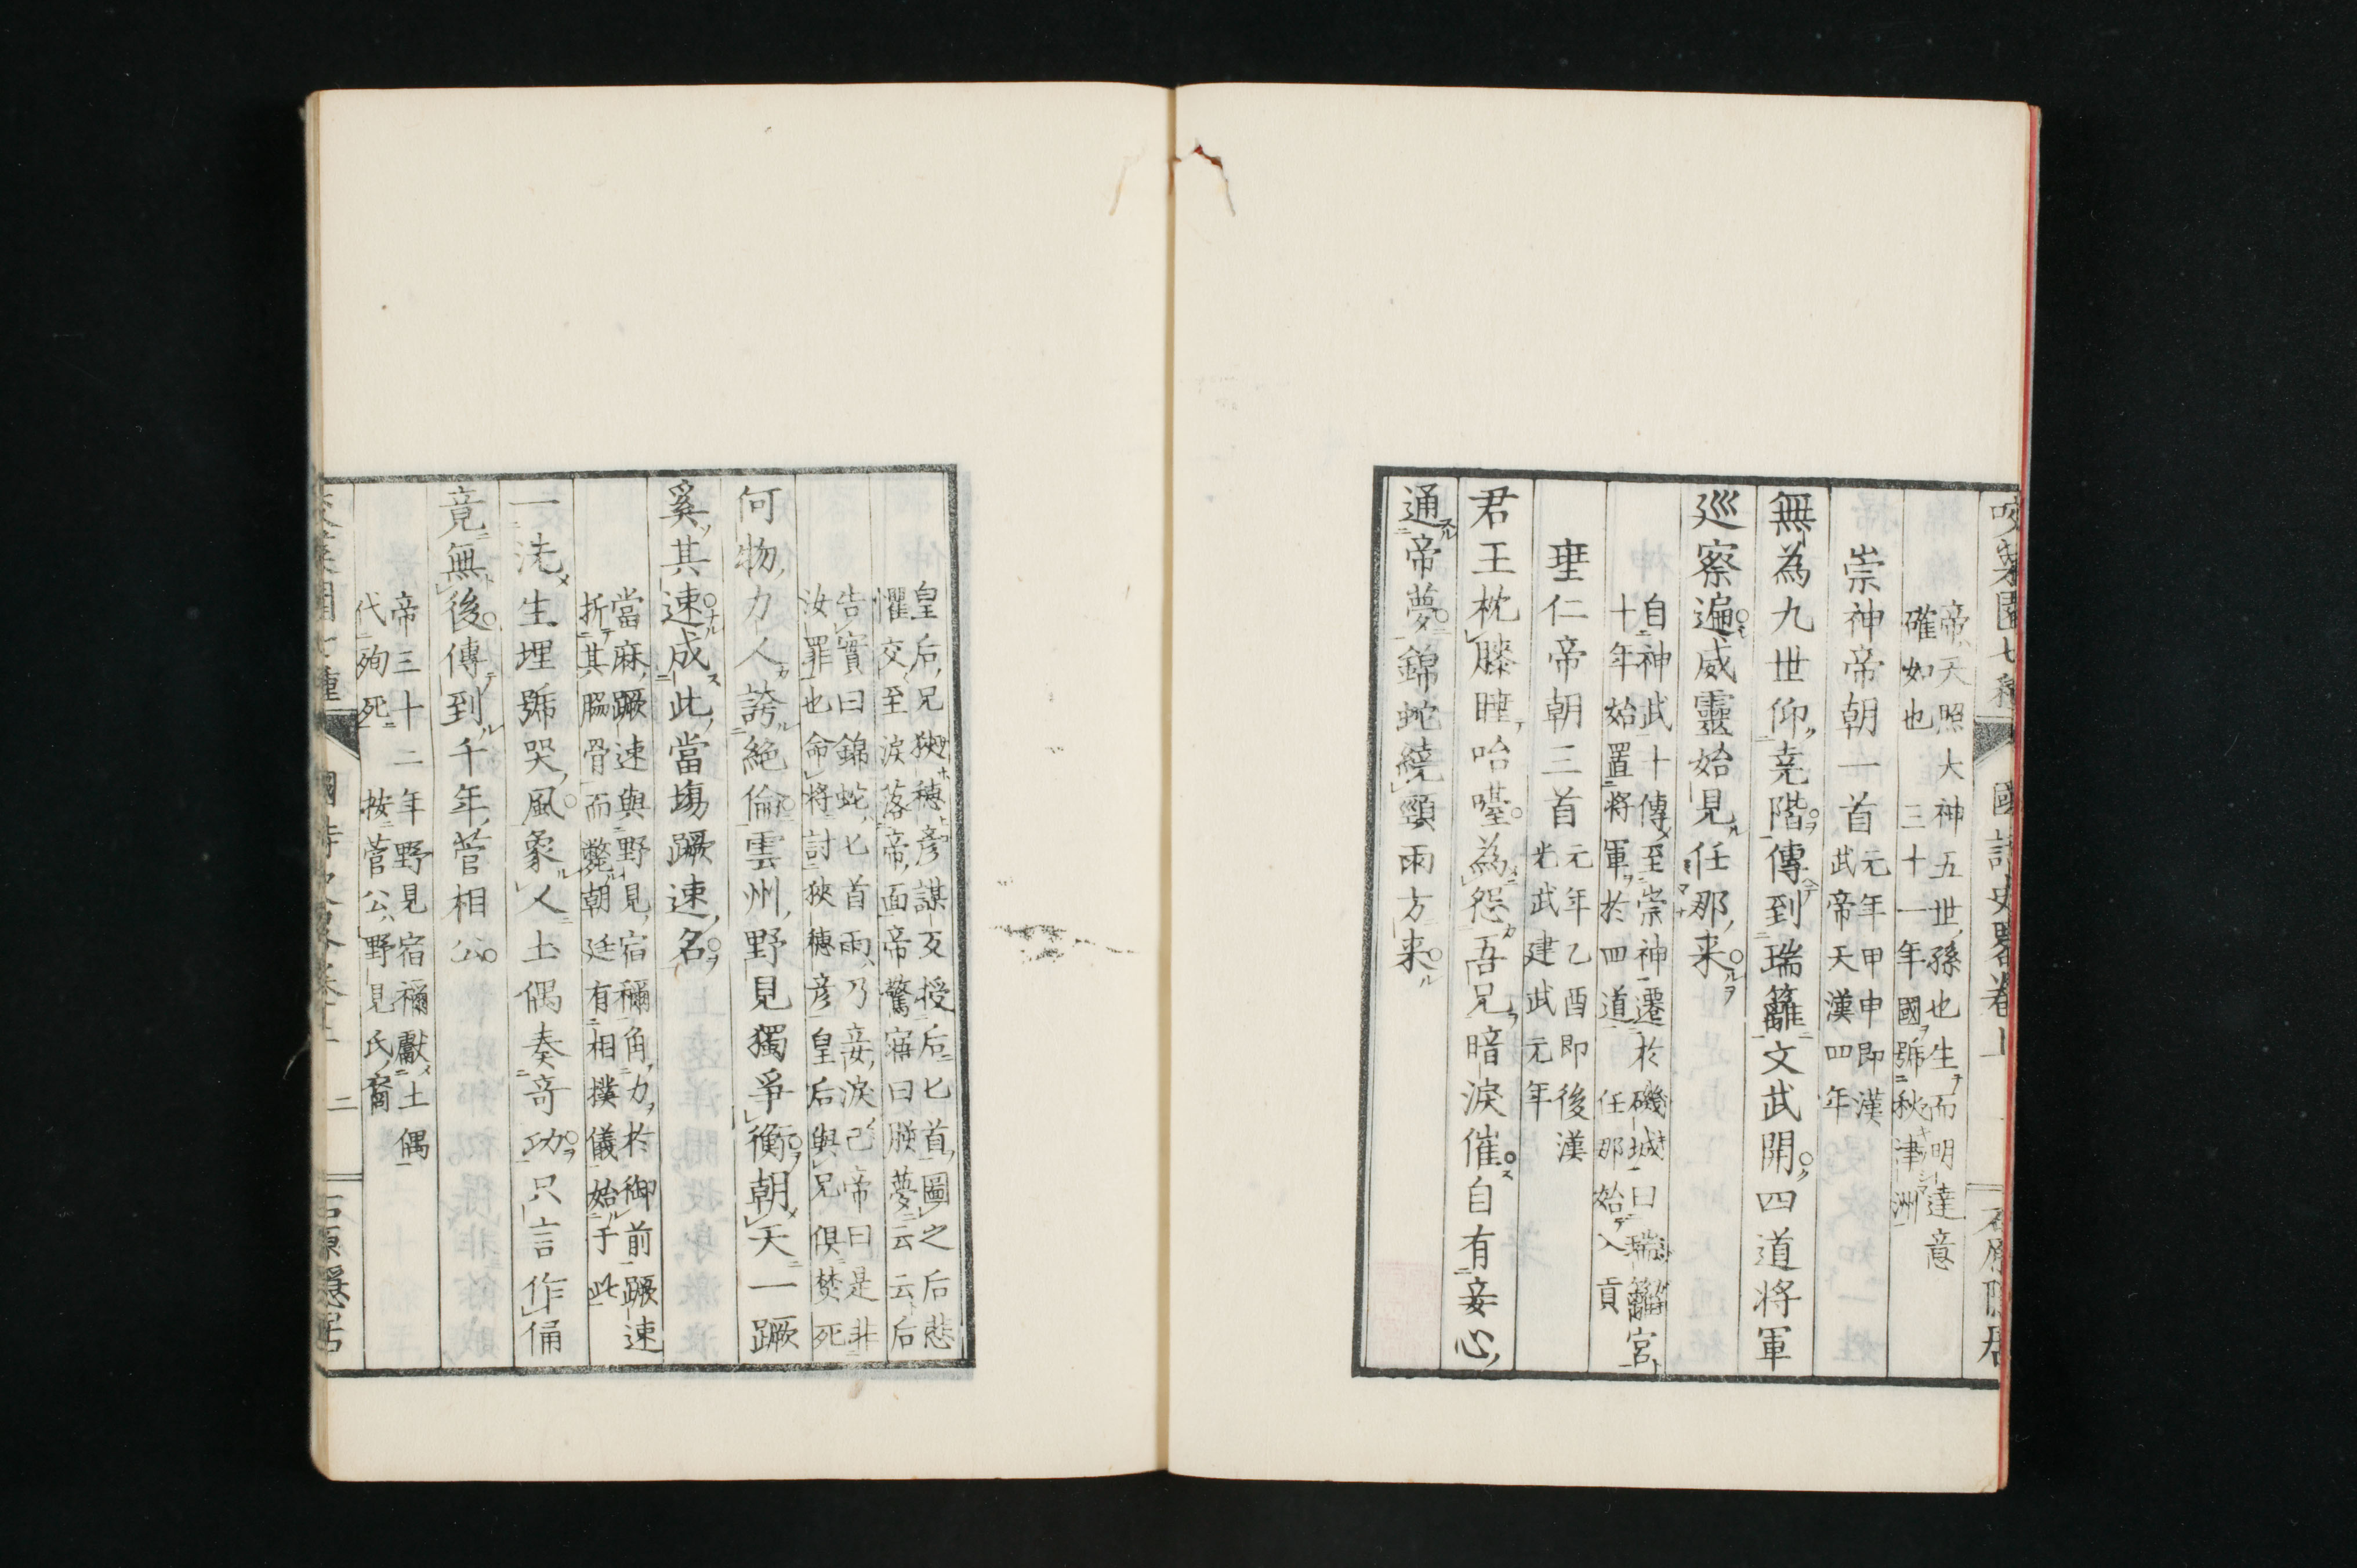 帝天照大神五世孫也生而明達意
確如也 三十一年國號秋津洲
崇神帝朝一首
元年甲申即漢
武帝天漢四年
無為九世仰堯階傳到瑞籬文武開四道將軍
巡察遍威靈始見任那来
自神武十傳至崇神遷於磯城曰瑞籬宮
十年始置將軍於四道 任那始入貢
垂仁帝朝三首
元年乙酉即後漢
光武建武元年
君王枕膝睡咍嚜為怨吾兄暗淚催自有妾心
通帝夢錦蛇繞頸雨方来
皇后兄狹穗彥謀反授后匕首圖之后悲
懼交至淚落帝面帝驚寤曰朕夢云云后
告實曰錦蛇匕首雨乃妾淚已帝曰是非
汝罪也命將討狹穗彥皇后與兄俱焚死
何物力人誇絕倫雲州野見獨爭衡朝天一蹶
奚其速成此當場蹶速名
當麻蹶速與野見宿禰角力於御前蹶速
折其脇骨而斃朝廷有相撲儀始于此
一洗生埋號哭風象人土偶奏竒功只言作俑
竟無後傳到千年菅相公
帝三十二年野見宿禰獻土偶
代殉死 按菅公野見氏裔
二